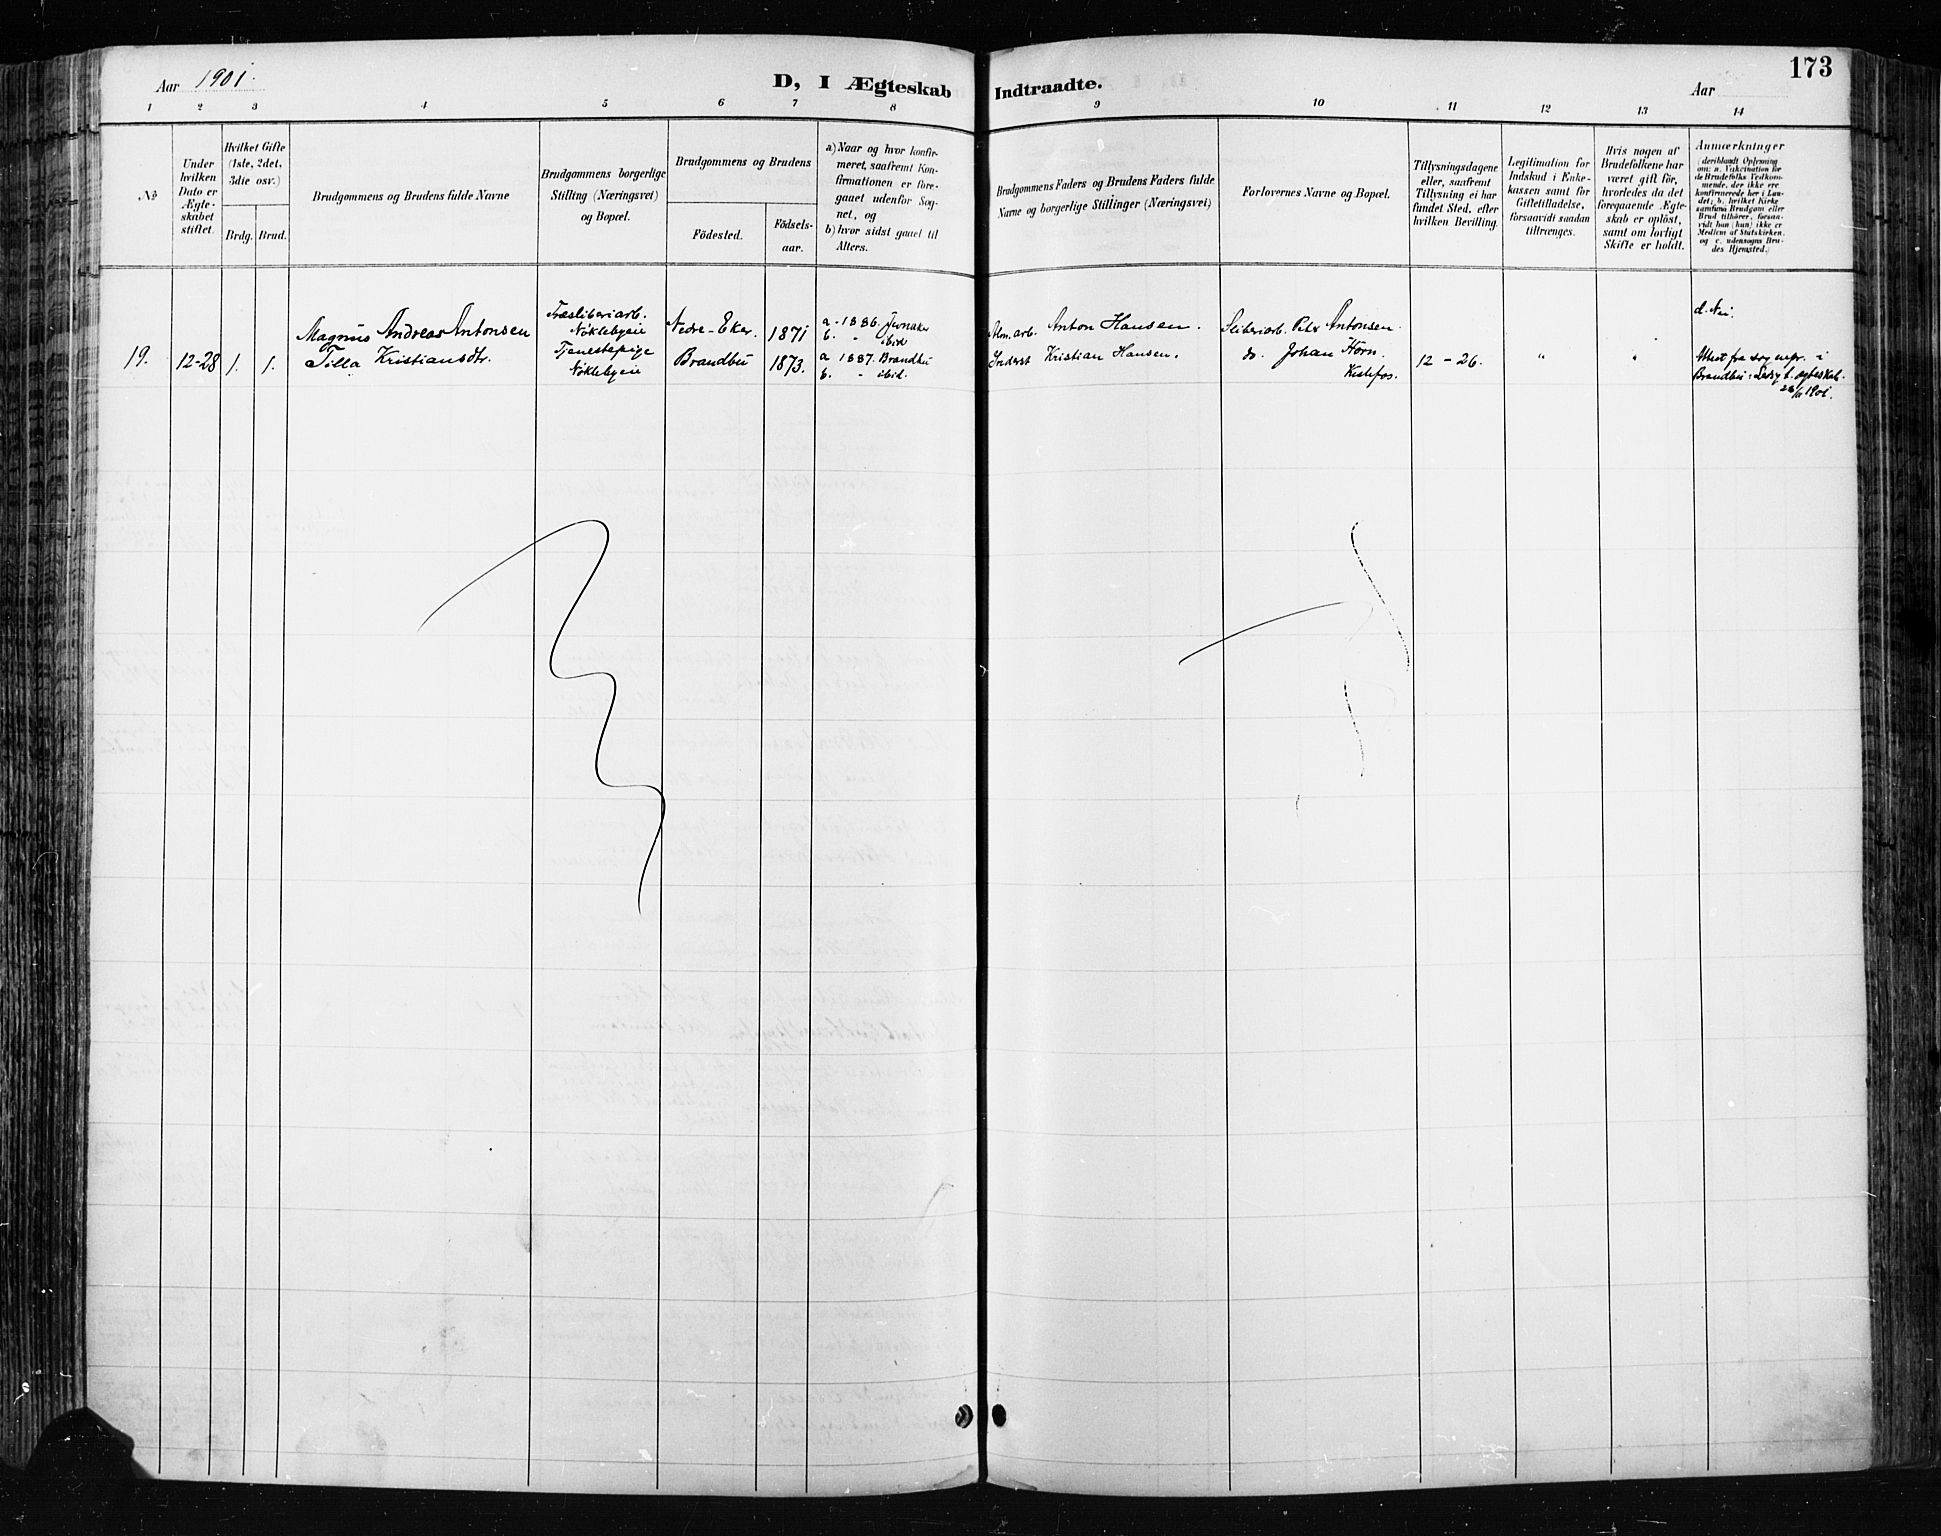 173
Aar 1901.
D, I Ægteskab Indtraadte.
Aar
1 2 3 4 5 6 7 8 9 10 11 12 13 14
№
Under
hvilken
Dato er
Ægte-
skabet
stiftet.
Hvilket Gifte
(1ste, 2det,
3die osv.)
Brdg.
Brud.
Brudgommens og Brudens fulde Navne
Brudgommens borgerlige
Stilling (Næringsvei)
og Bopæl.
Brudgommens og Brudens
Fødested.
Fødsels-
aar.
a) Naar og hvor konfir-
meret, saafremt Kon-
firmationen er fore-
gaaet udenfor Sog-
net, og
b) hvor sidst gaaet til
Alters.
Brudgommens Faders og Brudens Faders fulde
Navne og borgerlige Stillinger (Næringsvei)
Forlovernes Navne og Bopæl.
Tillysningsdagene
eller, saafremt
Tillysning ei har
fundet Sted, efter
hvilken Bevilling.
Legitimation for
Indskud i Enke-
kassen samt for
Giftetilladelse,
forsaavidt saadan
tiltrænges.
Hvis nogen af
Brudefolkene har
været gift før,
hvorledes da det
foregaaende Ægte-
skab er opløst,
samt om lovligt
Skifte er holdt.
Anmærkninger
(deriblandt Oplysning
om: a. Vakcination for
de Brudefolks Vedkom-
mende, der ikke ere
konfirmerede her i Lan-
det; b. hvilket Kirke-
samfund Brudgom eller
Brud tilhører, forsaa-
vidt han (hun) ikke er
Medlem af Statskirken,
og c. udensogns Bru-
des Hjemsted.)
19. 12-28 1. 1.
Magnus Andreas Antonsen
Tilla Kristiansdtr.
Træsliberiarb.
Nøklebyeie
Tjenestepige
Nøklebyeie
Nedre-Eker. 1871
Brandbu 1873.
a. 1886. Jevnaker
b. " ibid
a 1887. Brandbu
b. " ibid.
Alm. arb. Anton Hansen.
Inderst Kristian Hansen.
Sliberiarb. Petr Antonsen.
do. Johan Horn.
Kistefos.
12 - 26.
"
"
d. Nei.
Attest fra sognepr. i
Brandbu:
1901.